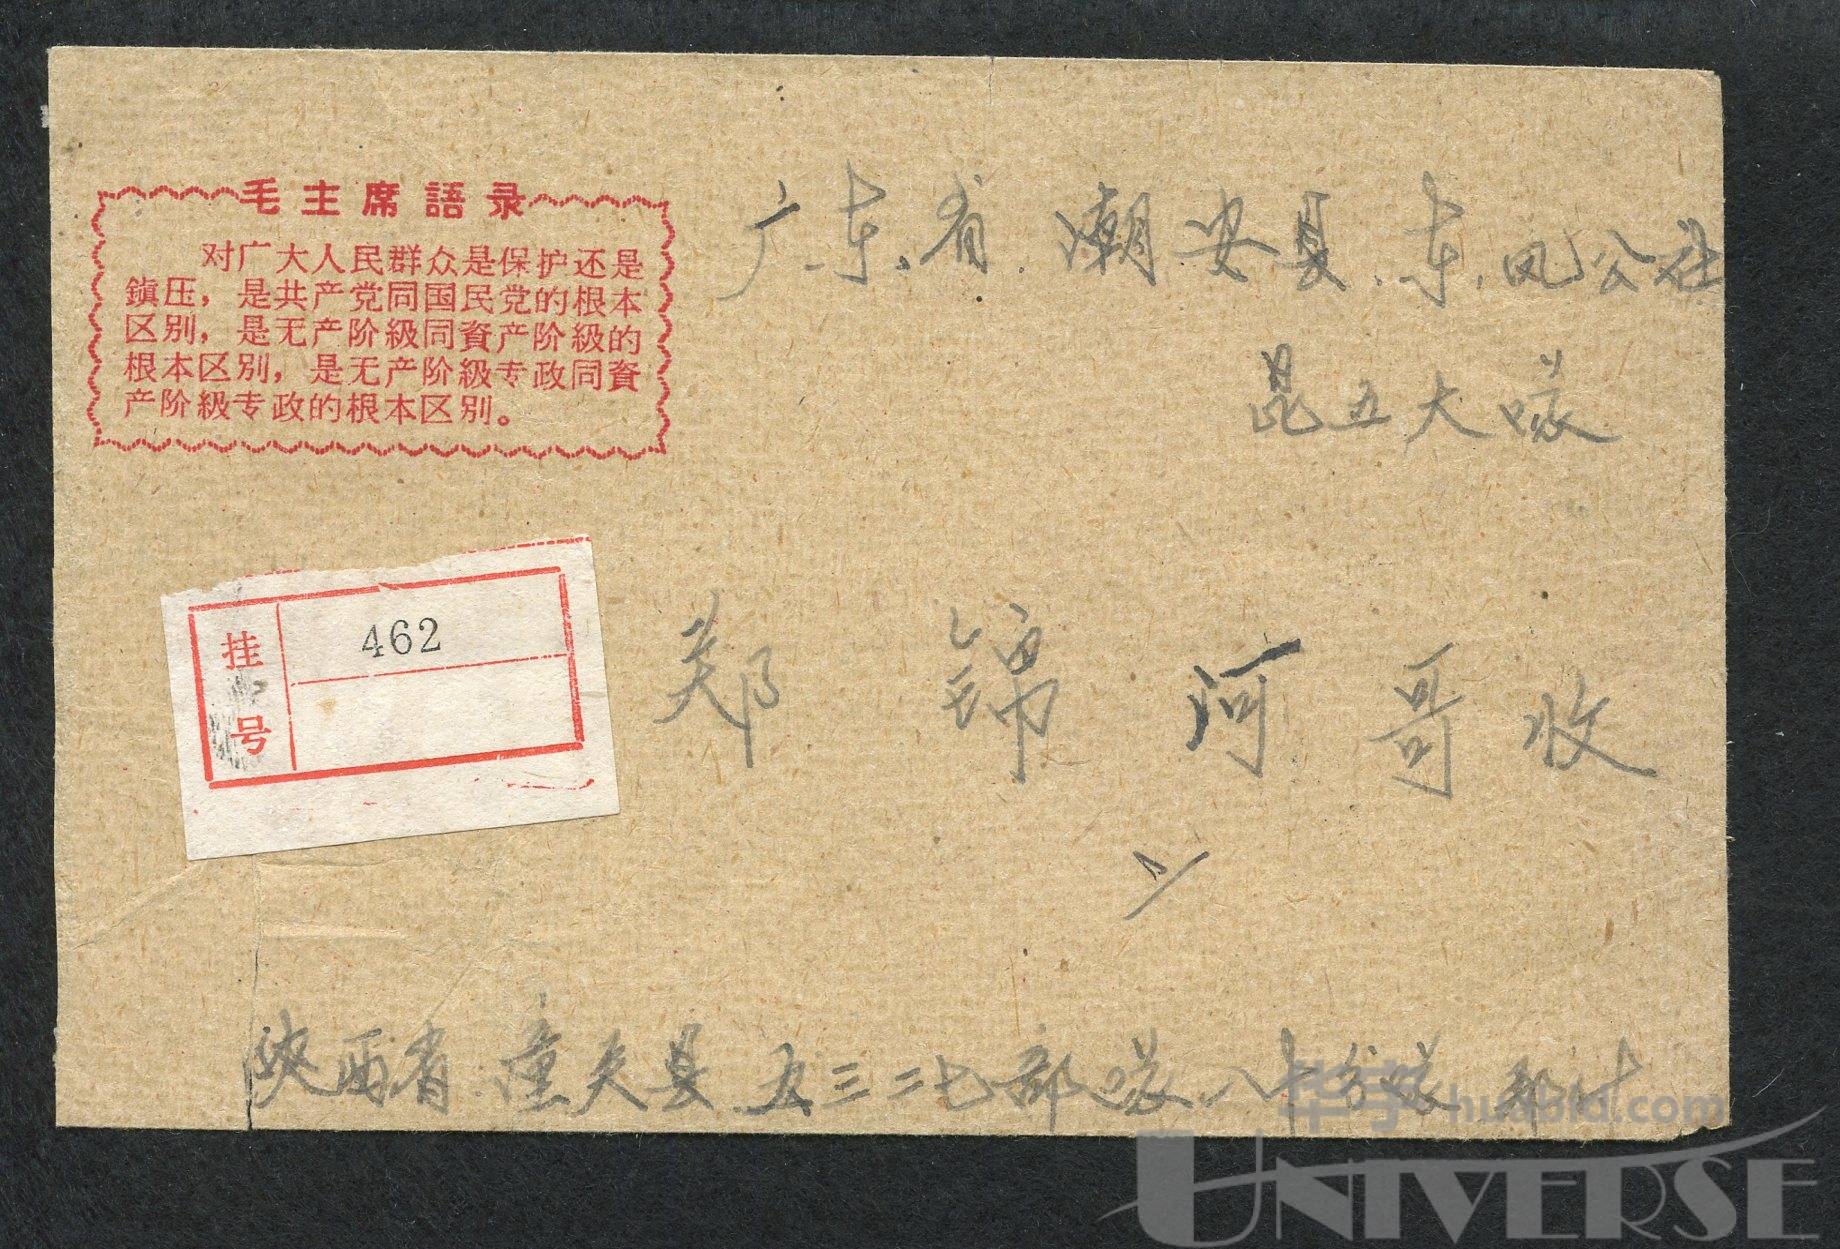 毛主席語录
对广大人民群众是保护还是
鎮压，是共产党同国民党的根本
区别，是无产阶級同資产阶級的
根本区别，是无产阶級专政同資
产阶級专政的根本区别。
广东省.潮安县.东.风公社
昆五大队
挂号
462
郑锦河哥收
陕西省 县 五三二七部队八十分队 郑付
华宇 huabid.com
UNIVERSE